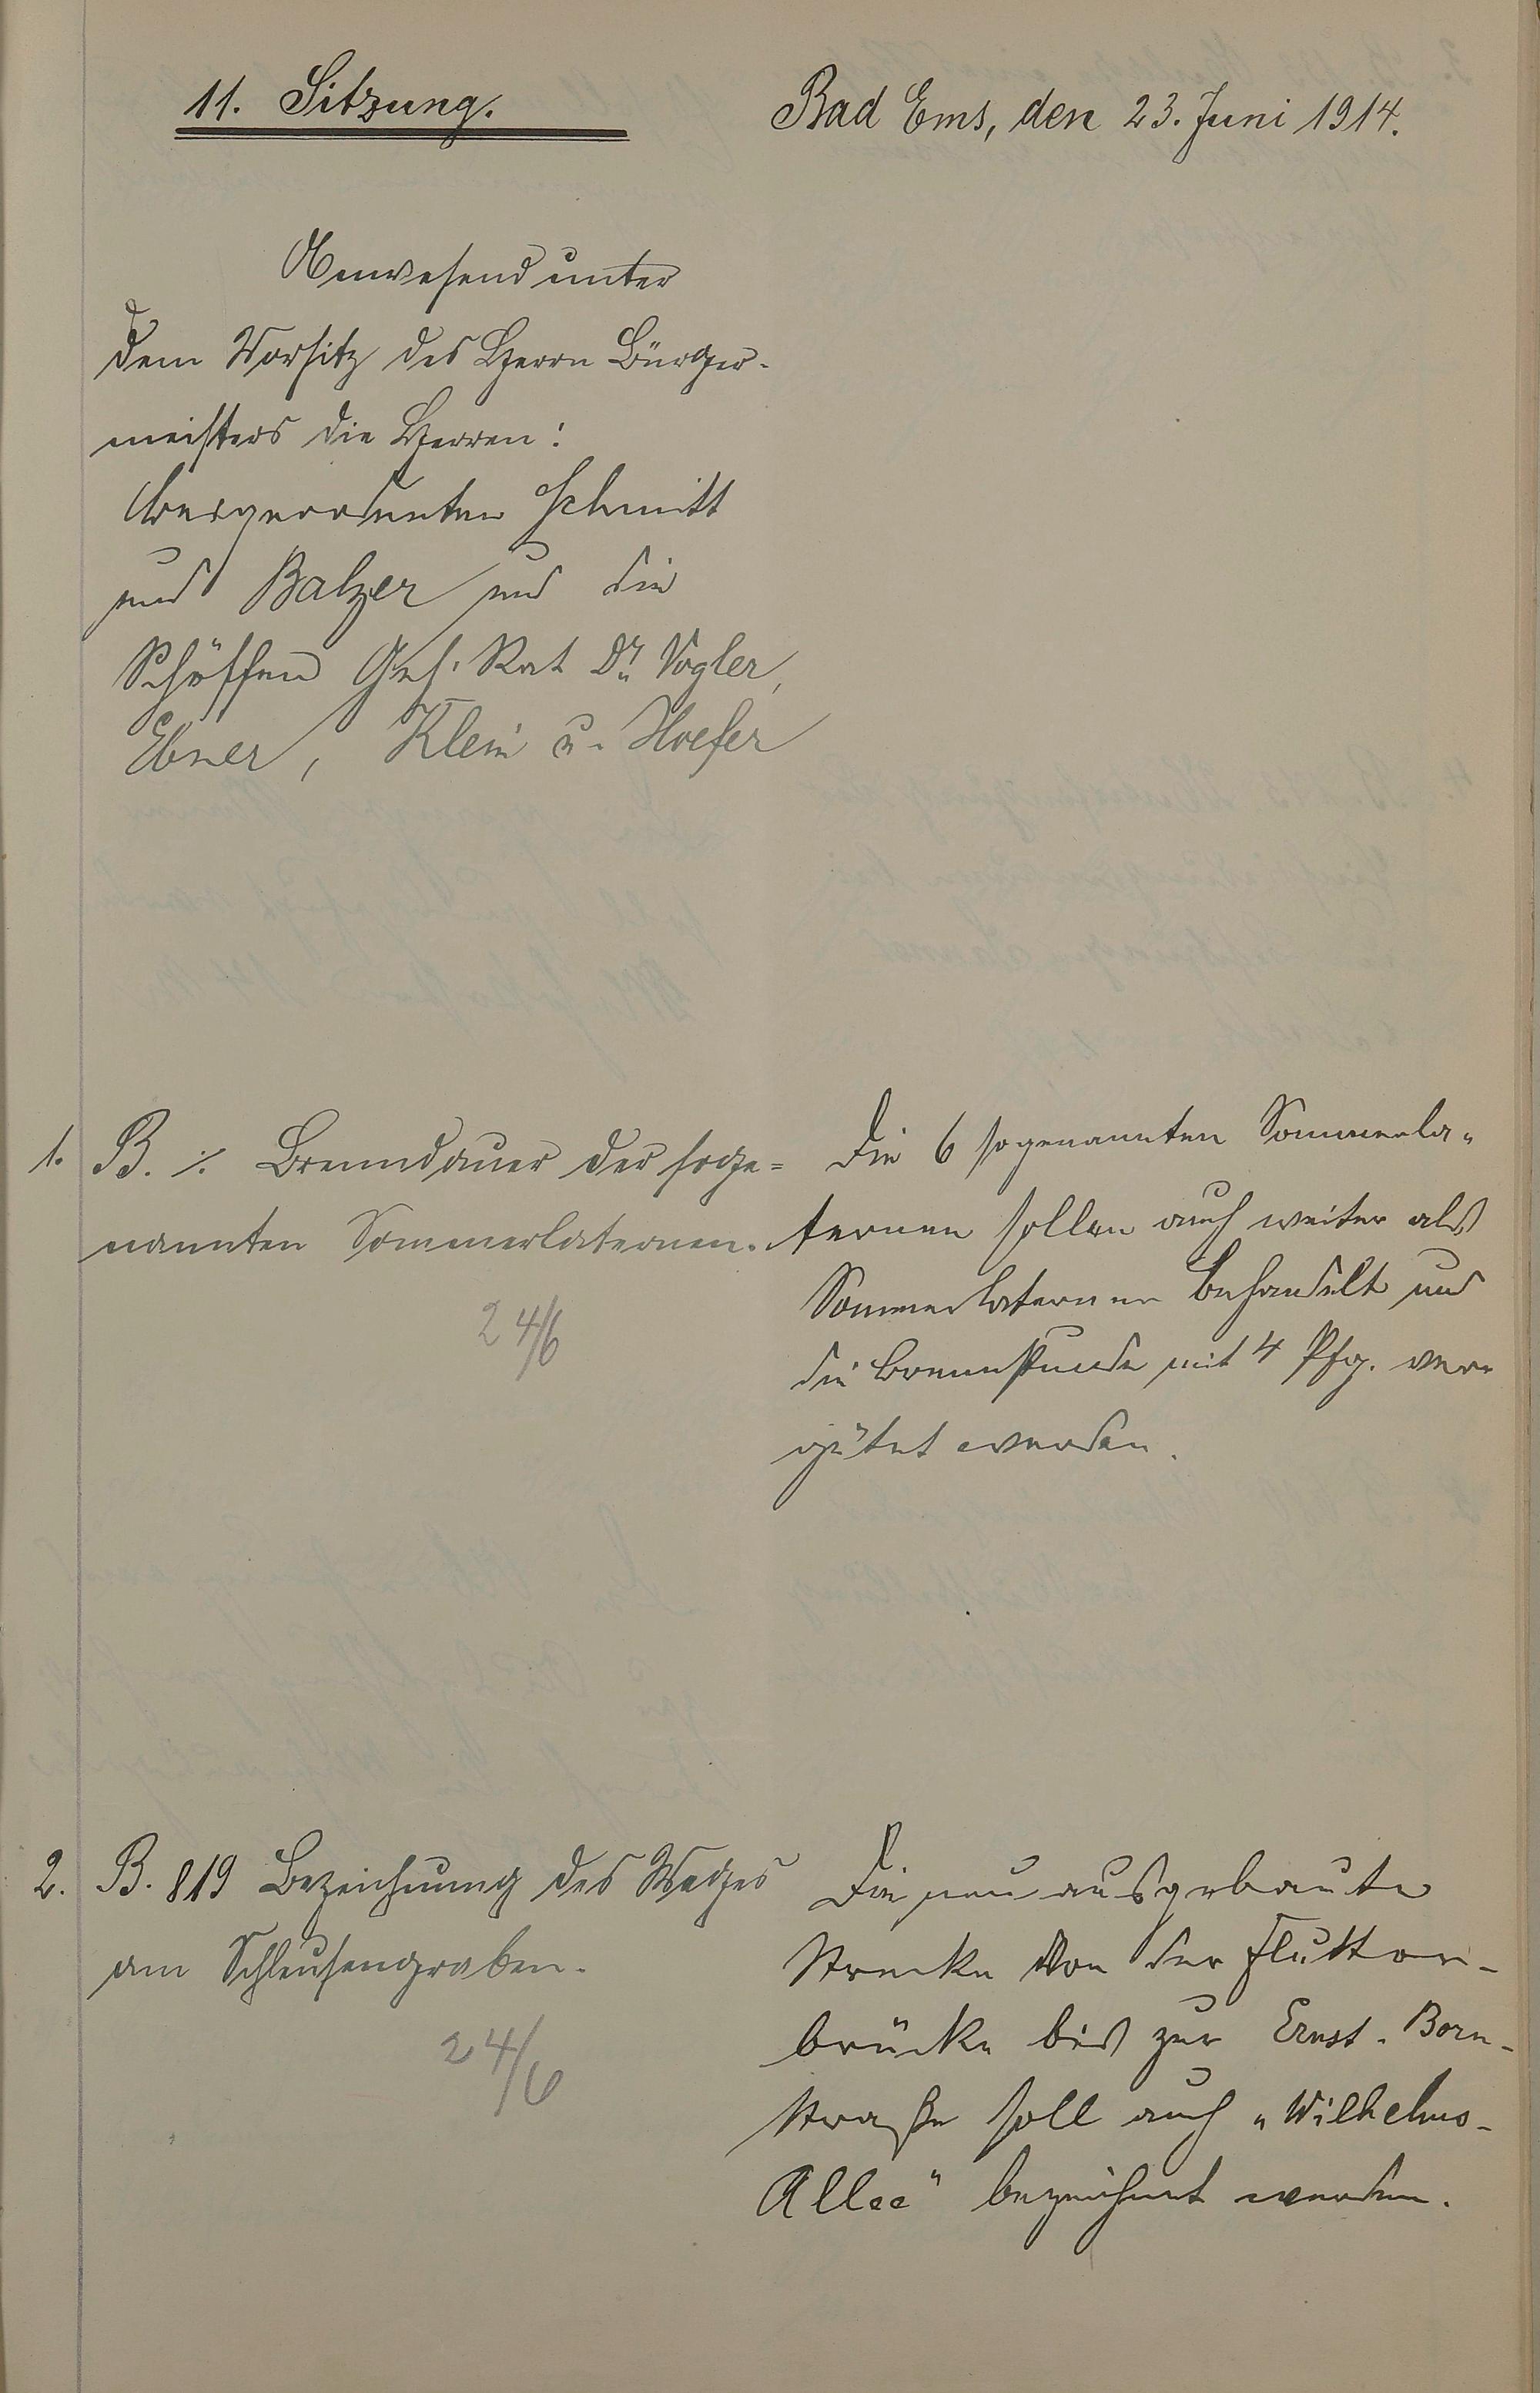 11. Sitzung.
Bad Ems, den 23. Juni 1914.
Anwesend unter
dem Vorsitz des Herrn Bürger-
meisters die Herren:
Beigeordneten Schmitt
und Balzer und die
Schöffen Geh. Rat Dr. Vogler,
Ebner, Klein u. Hoefer
1. B. ./. Brenndauer der soge=
nannten Sommerlaternen.
24/6
Die 6 sogenannten Sommerla-
ternen sollen auch weiter als
Sommerlaternen behandelt und
die Brennstunde mit 4 Pfg. ver-
gütet werden.
2. B. 819 Bezeichnung des Weges
am Schleusengraben.
24/6
Die neu ausgebaute
Strecke von der Fluttor-
brücke bis zur Ernst-Born-
straße soll auch „Wilhelms-
Allee" bezeichnet werden.